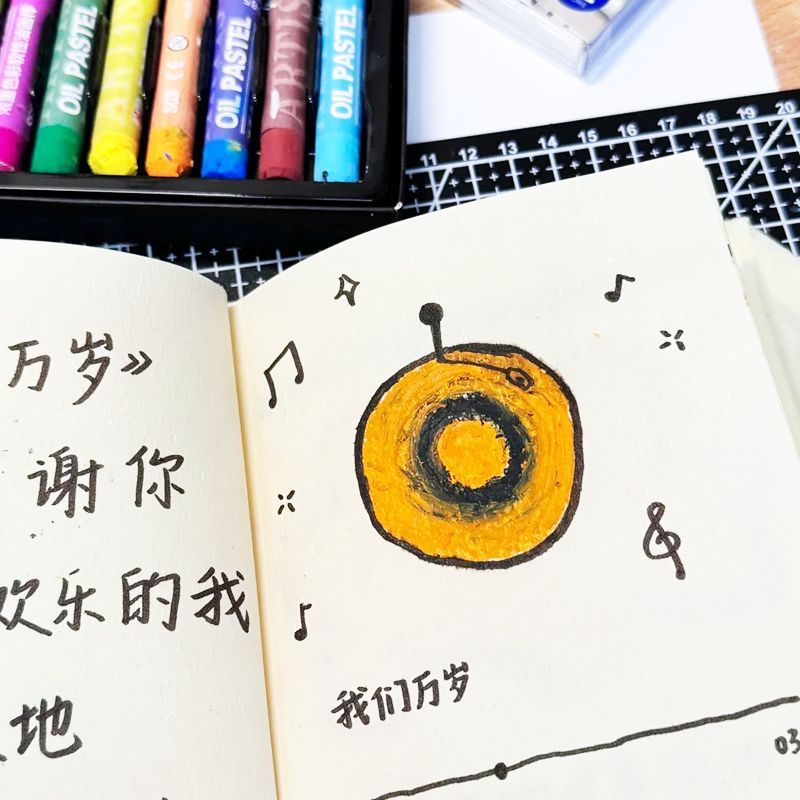 OIL PASTEL
ARTIS
OIL PASTEL
ARTIS
OIL PASTEL
11 12 13 14 15 16 17 18 19 20
万岁》
谢你
欢乐的我
地
我们万岁
03